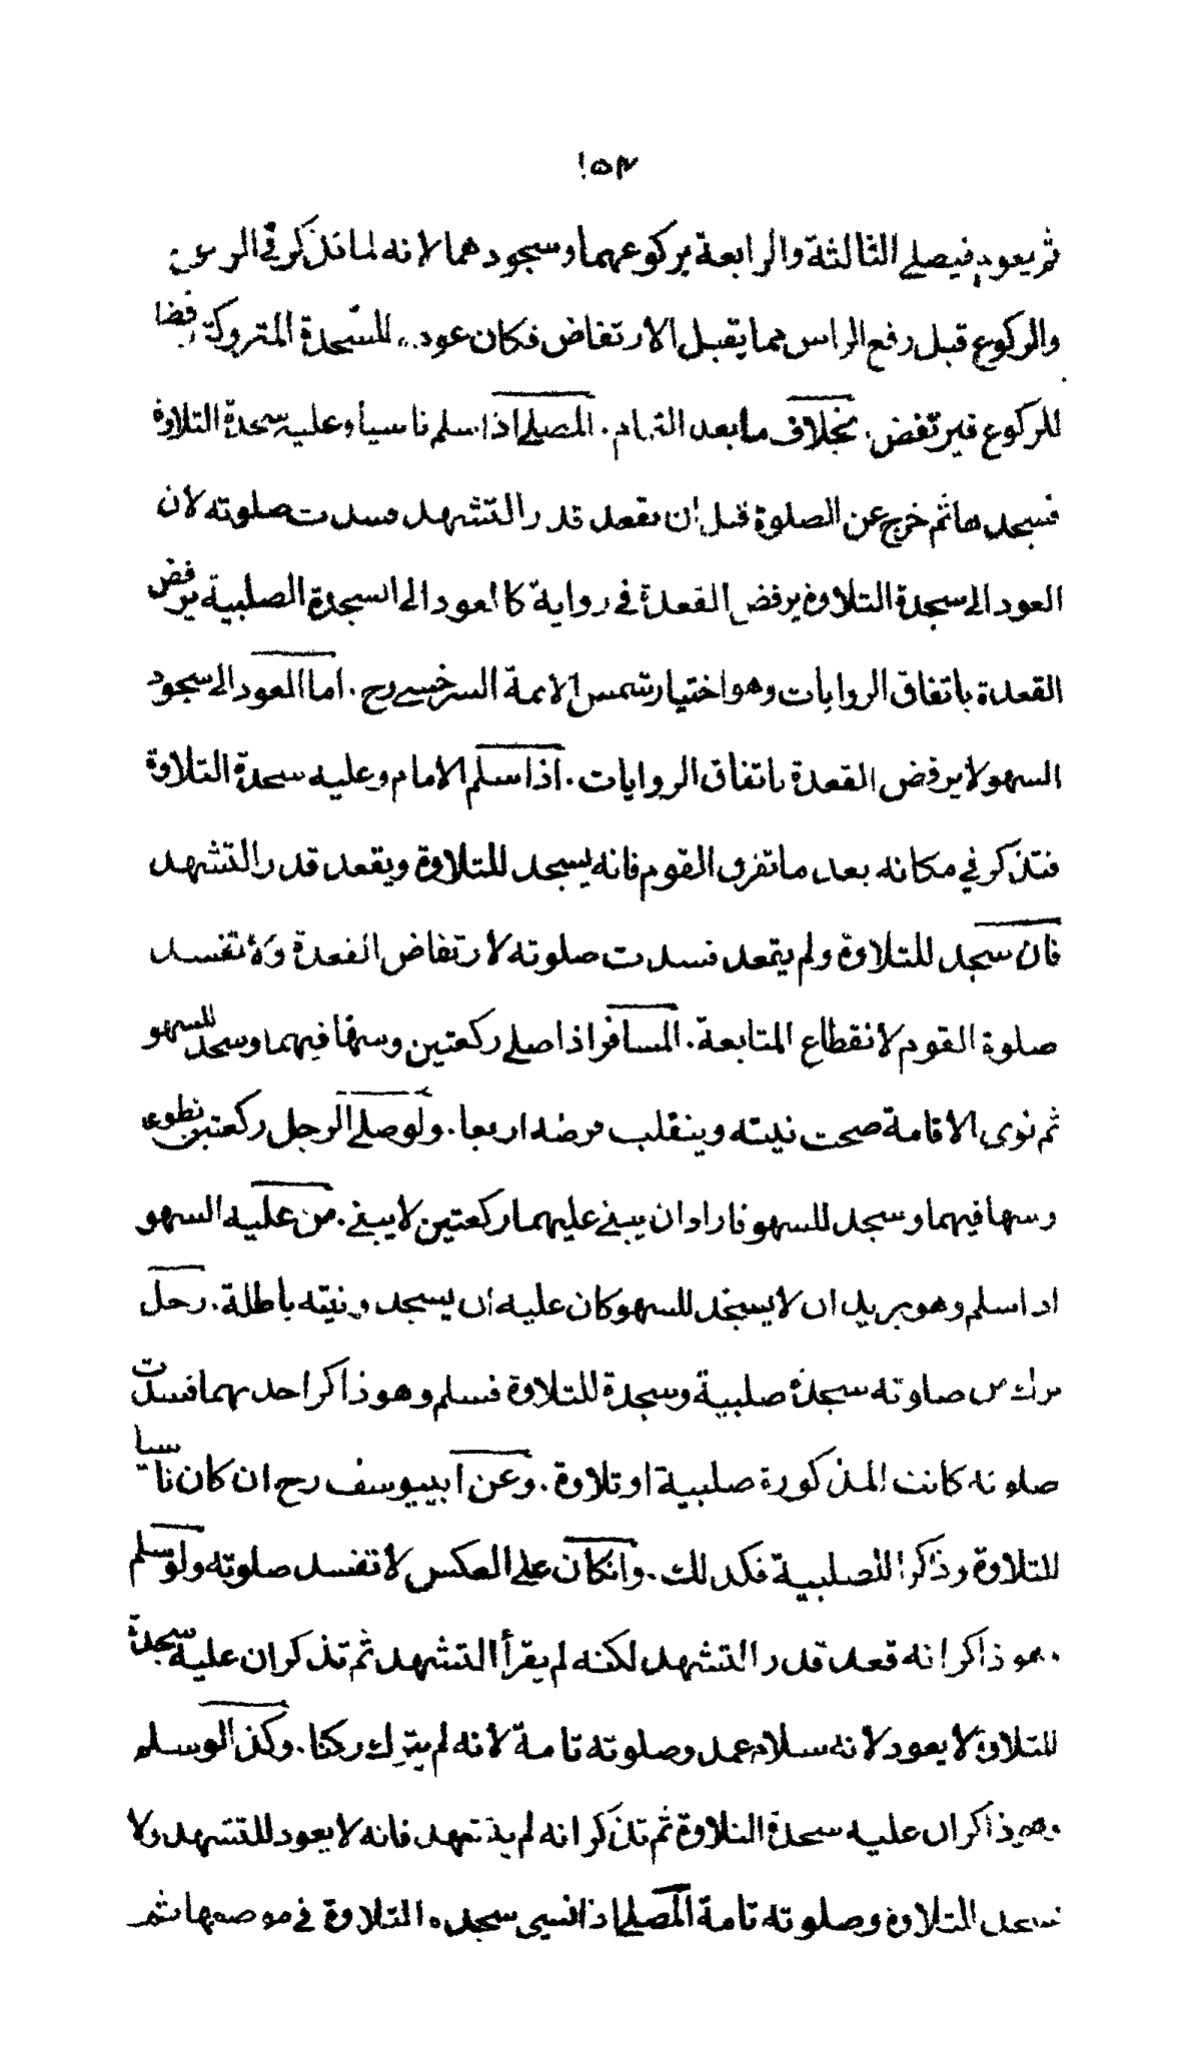 ١٥٣
ثم يعود فيصلي الثالثة والرابعة بركوعهما وسجودهما لانه لما تذكر في الركوع
والركوع قبل رفع الراس مما يقبل الارتفاض فكان عوده للسجدة المتروكة رفضا
للركوع فيرتفض. بخلاف ما بعد التمام. المصلي اذا سلم ناسيا وعليه سجدة التلاوة
فسجدها ثم خرج عن الصلوة قبل ان يقعد قدر التشهد فسدت صلوته لان
العود الى سجدة التلاوة يرفض القعدة في رواية كالعود الى السجدة الصلبية يرفض
القعدة باتفاق الروايات وهو اختيار شمس الائمة السرخسي رح. اما العود الى سجود
السهو لا يرفض القعدة باتفاق الروايات. اذا سلم الامام وعليه سجدة التلاوة
فتذكر في مكانه بعد ما تفرق القوم فانه يسجد للتلاوة ويقعد قدر التشهد
فان سجد للتلاوة ولم يقعد فسدت صلوته لارتفاض القعدة ولا تفسد
صلوة القوم لانقطاع المتابعة. المسافر اذا صلى ركعتين وسها فيهما وسجد للسهو
ثم نوى الاقامة صحت نيته وينقلب فرضه اربعا. ولو صلى الرجل ركعتين تطوعا
وسها فيهما وسجد للسهو فاراد ان يبني عليهما ركعتين لا يبني. من عليه السهو
اذا سلم وهو يريد ان لا يسجد للسهو كان عليه ان يسجد ونيته باطلة. رجل
ترك من صلوته سجدة صلبية وسجدة للتلاوة فسلم وهو ذاكر احدىهما فسدت
صلوته كانت المذكورة صلبية او تلاوة. وعن ابييوسف رح ان كان ناسيا
للتلاوة وذاكرا للصلبية فكذلك. وانكان على العكس لا تفسد صلوته ولو سلم
وهو ذاكر انه قعد قدر التشهد لكنه لم يقرأ التشهد ثم تذكر ان عليه سجدة
للتلاوة لا يعود لانه سلام عمد وصلوته تامة لانه لم يترك ركنا. وكذا لو سلم
وهو ذاكر ان عليه سجدة التلاوة ثم تذكر انه لم يتشهد فانه لا يعود للتشهد ولا
يسجد للتلاوة وصلوته تامة المصلي اذا نسي سجدة التلاوة في موضعها ثم